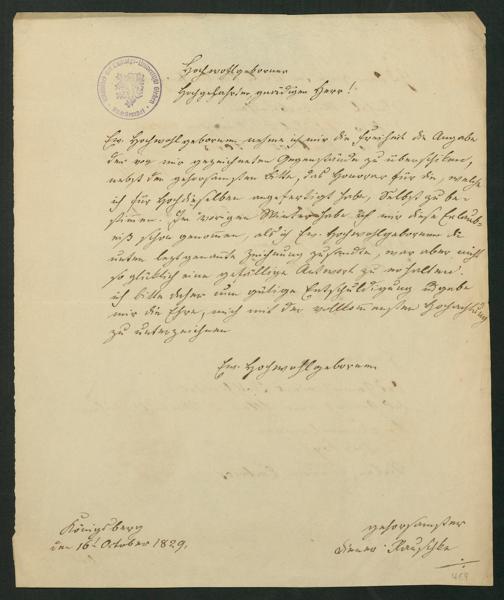 Hochwohlgeborner
Hochgeehrter gnädiger Herr!
Ew. Hochwohlgeboren nehme ich mir die Freiheit die Angabe
der von mir gezeichneten Gegenstände zu überschicken,
nebst der gehorsamsten Bitte, das Honorar für die, welche
ich für Hochdieselben angefertigt habe, Selbst zu be-
stimmen. Im vorigen Winter habe ich mir diese Erlaub-
niß schon genommen, als ich Ew. Hochwohlgeboren die
unten letztgenannte Zeichnung zusandte, war aber nicht
so glücklich eine gefällige Antwort zu erhalten.
ich bitte daher um gütige Entschuldigung u gebe
mir die Ehre, mich mit der vollkommensten Hochachtung
zu unterzeichnen
Ew. Hochwohlgeboren
Königsberg
den 16t October 1829.
gehorsamster
diener Rauschke